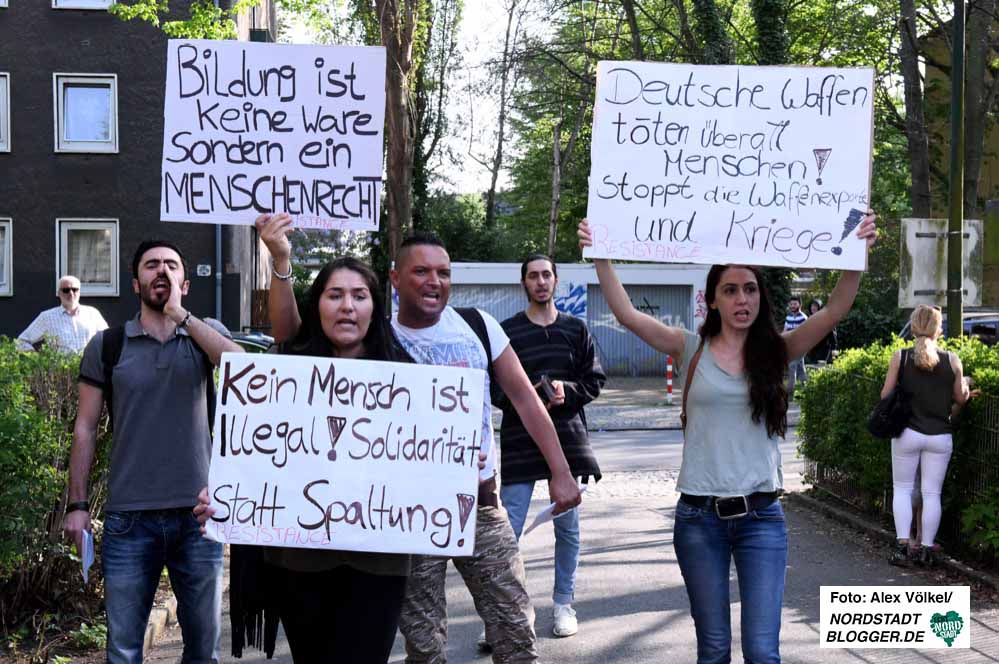 Bildung ist
keine Ware
Sondern ein
MENSCHENRECHT
Deutsche Waffen
töten überall
Menschen!
Stoppt die Waffenexporte
und Kriege!
RESISTANCE
Kein Mensch ist
Illegal! Solidarität
Statt Spaltung!
RESISTANCE
Foto: Alex Völkel/
NORDSTADT
BLOGGER.DE
NORD
STADT